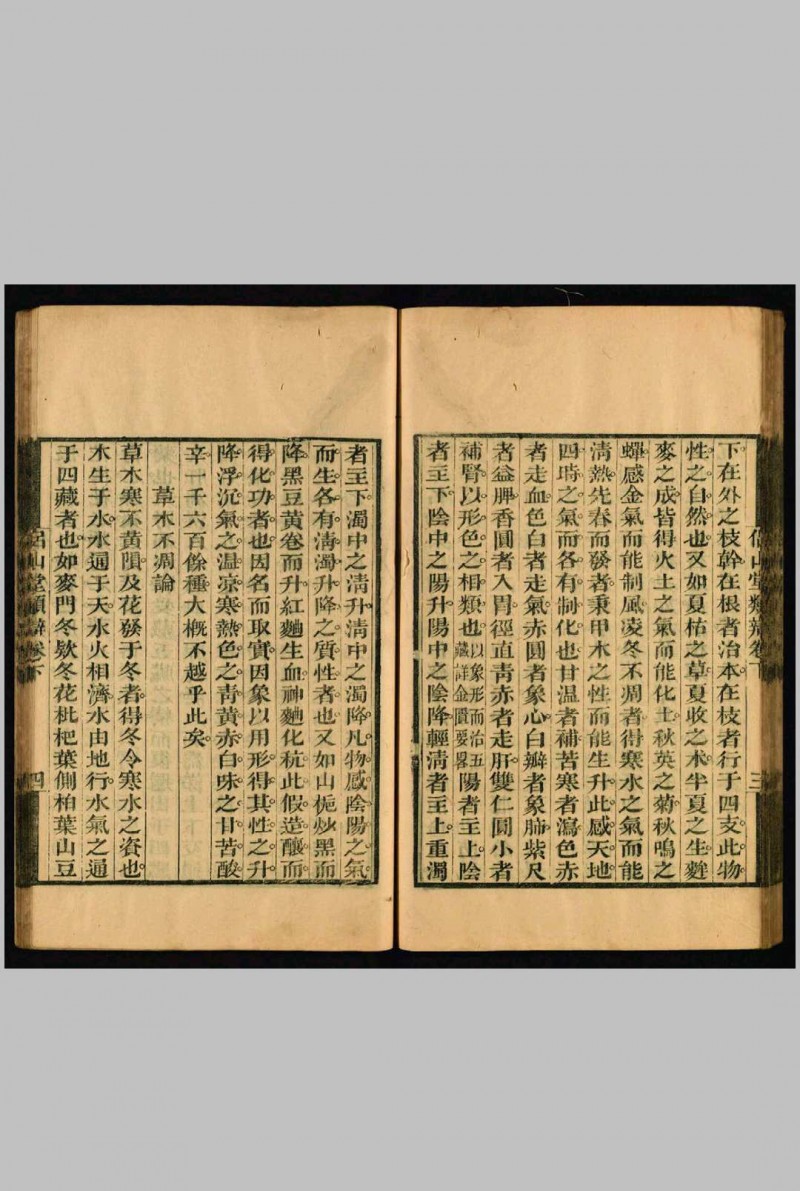 侶山堂類辯卷下
三
下在外之枝幹在根者治本在枝者行于四支此物
性之自然也又如夏枯之草夏收之朮半夏之生蘴
麥之成皆得火土之氣而能化土秋英之菊秋鳴之
蟬感金氣而能制風凌冬不凋者得寒水之氣而能
清熱先春而發者秉甲木之性而能生升此感天地
四時之氣而各有制化也甘温者補苦寒者瀉色赤
者走血色白者走氣赤圓者象心白瓣者象肺紫尺
者益脾香圓者入胃徑直青赤者走肝雙仁圓小者
補腎以形色之相類也以象形而治五藏詳金匱要畧陽者主上陰
者主下陰中之陽升陽中之陰降輕清者主上重濁
者主下濁中之清升清中之濁降凡物感陰陽之氣
而生各有清濁升降之質性者也又如山梔炒黑而
降黑豆黄卷而升紅麯生血神麯化杭此假造釀而
得化功者也因名而取實因象以用形得其性之升
降浮沉氣之温凉寒熱色之青黄赤白味之甘苦酸
辛一千六百餘種大槪不越乎此矣
草木不凋論
草木寒不黄隕及花發于冬者得冬令寒水之資也
木生于水水通于天水火相濟水由地行水氣之通
于四藏者也如麥門冬欵冬花枇杷葉側柏葉山豆
侶山堂類辯卷下
四